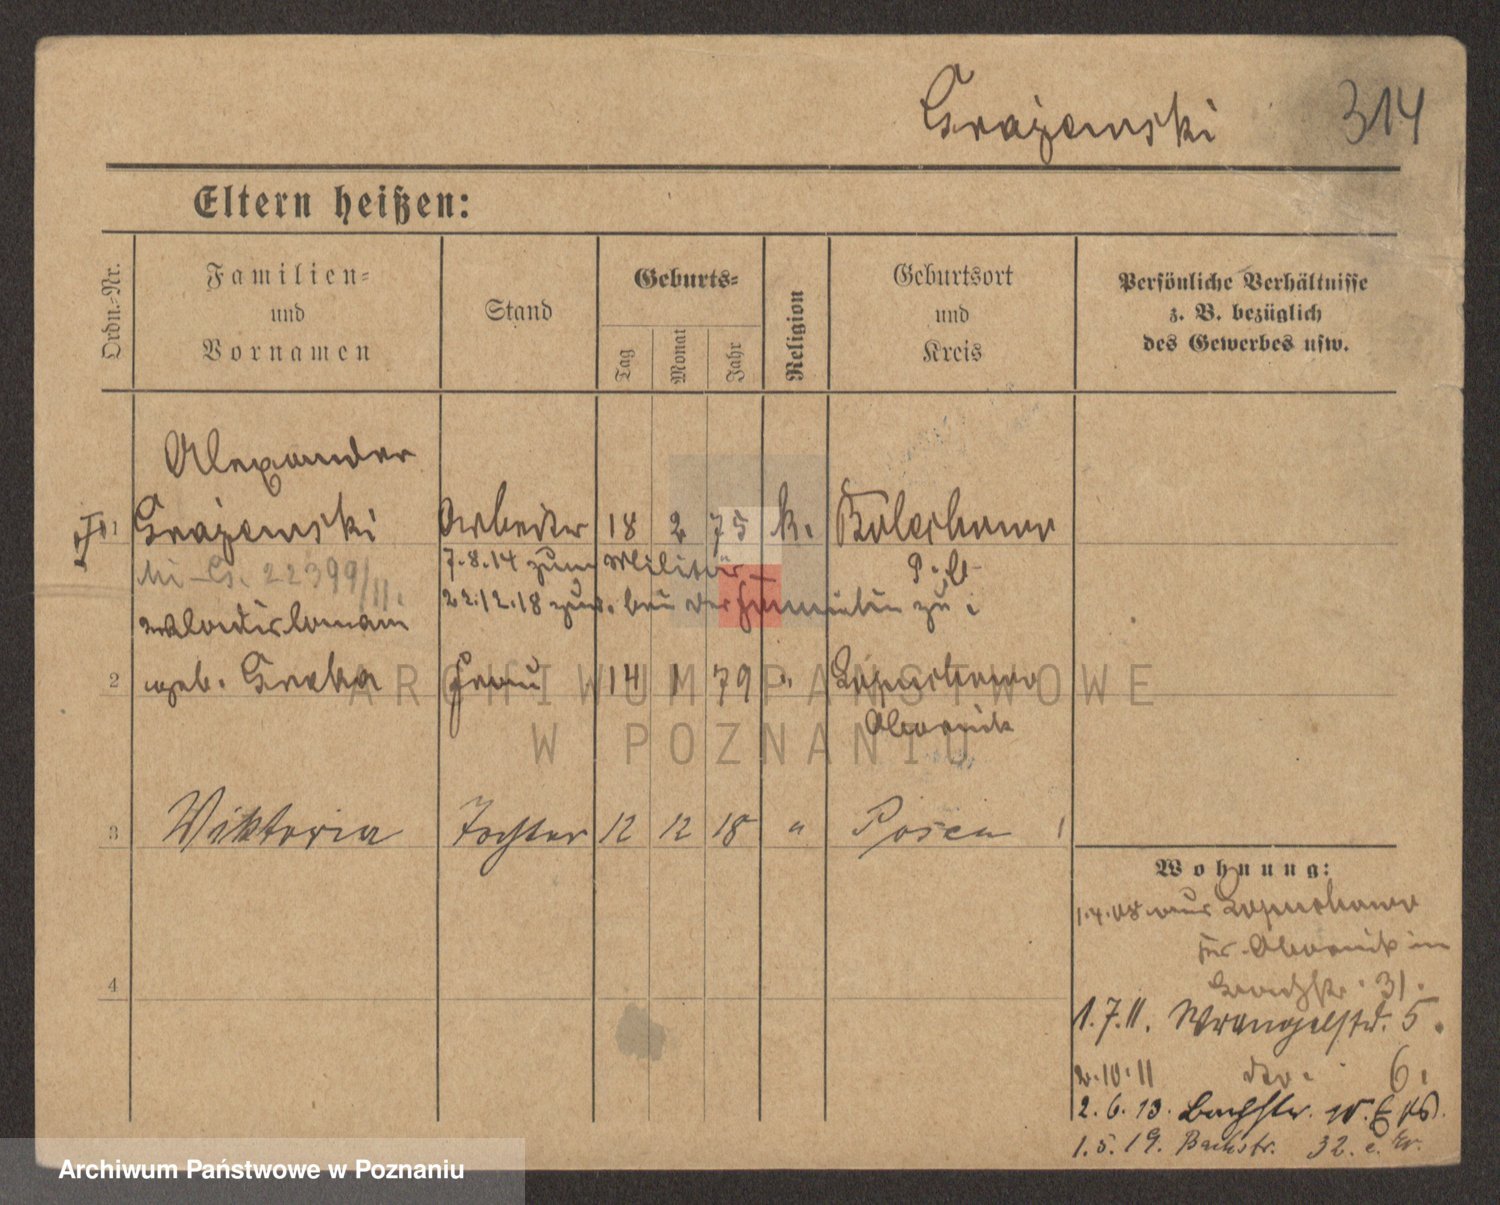 Grajewski 314
Eltern heißen:
Ordn.-Nr.
Familien-
und
Vornamen
Stand
Geburts-
Tag
Monat
Jahr
Religion
Geburtsort
und
Kreis
Persönliche Verhältnisse
z. B. bezüglich
des Gewerbes usw.
Alexander
1 Grajewski Arbeiter 18 2 75 k.
7.8.14 zum Militär
22399/II.
22.12.18 zur. bei der Familie
2 geb. Frau 14 1 79 "
Obornik
3 Wiktoria Tochter 12 12 18 " Posen
Wohnung:
1.4.08 aus
Obornik in
31.
1.7.11. Wrangelstr. 5.
2.10.11 dto. 6.
2.6.13. Bachstr.
1.5.19. Bachstr. 32.
4
ARCHIWUM PAŃSTWOWE
W POZNANIU
Archiwum Państwowe w Poznaniu